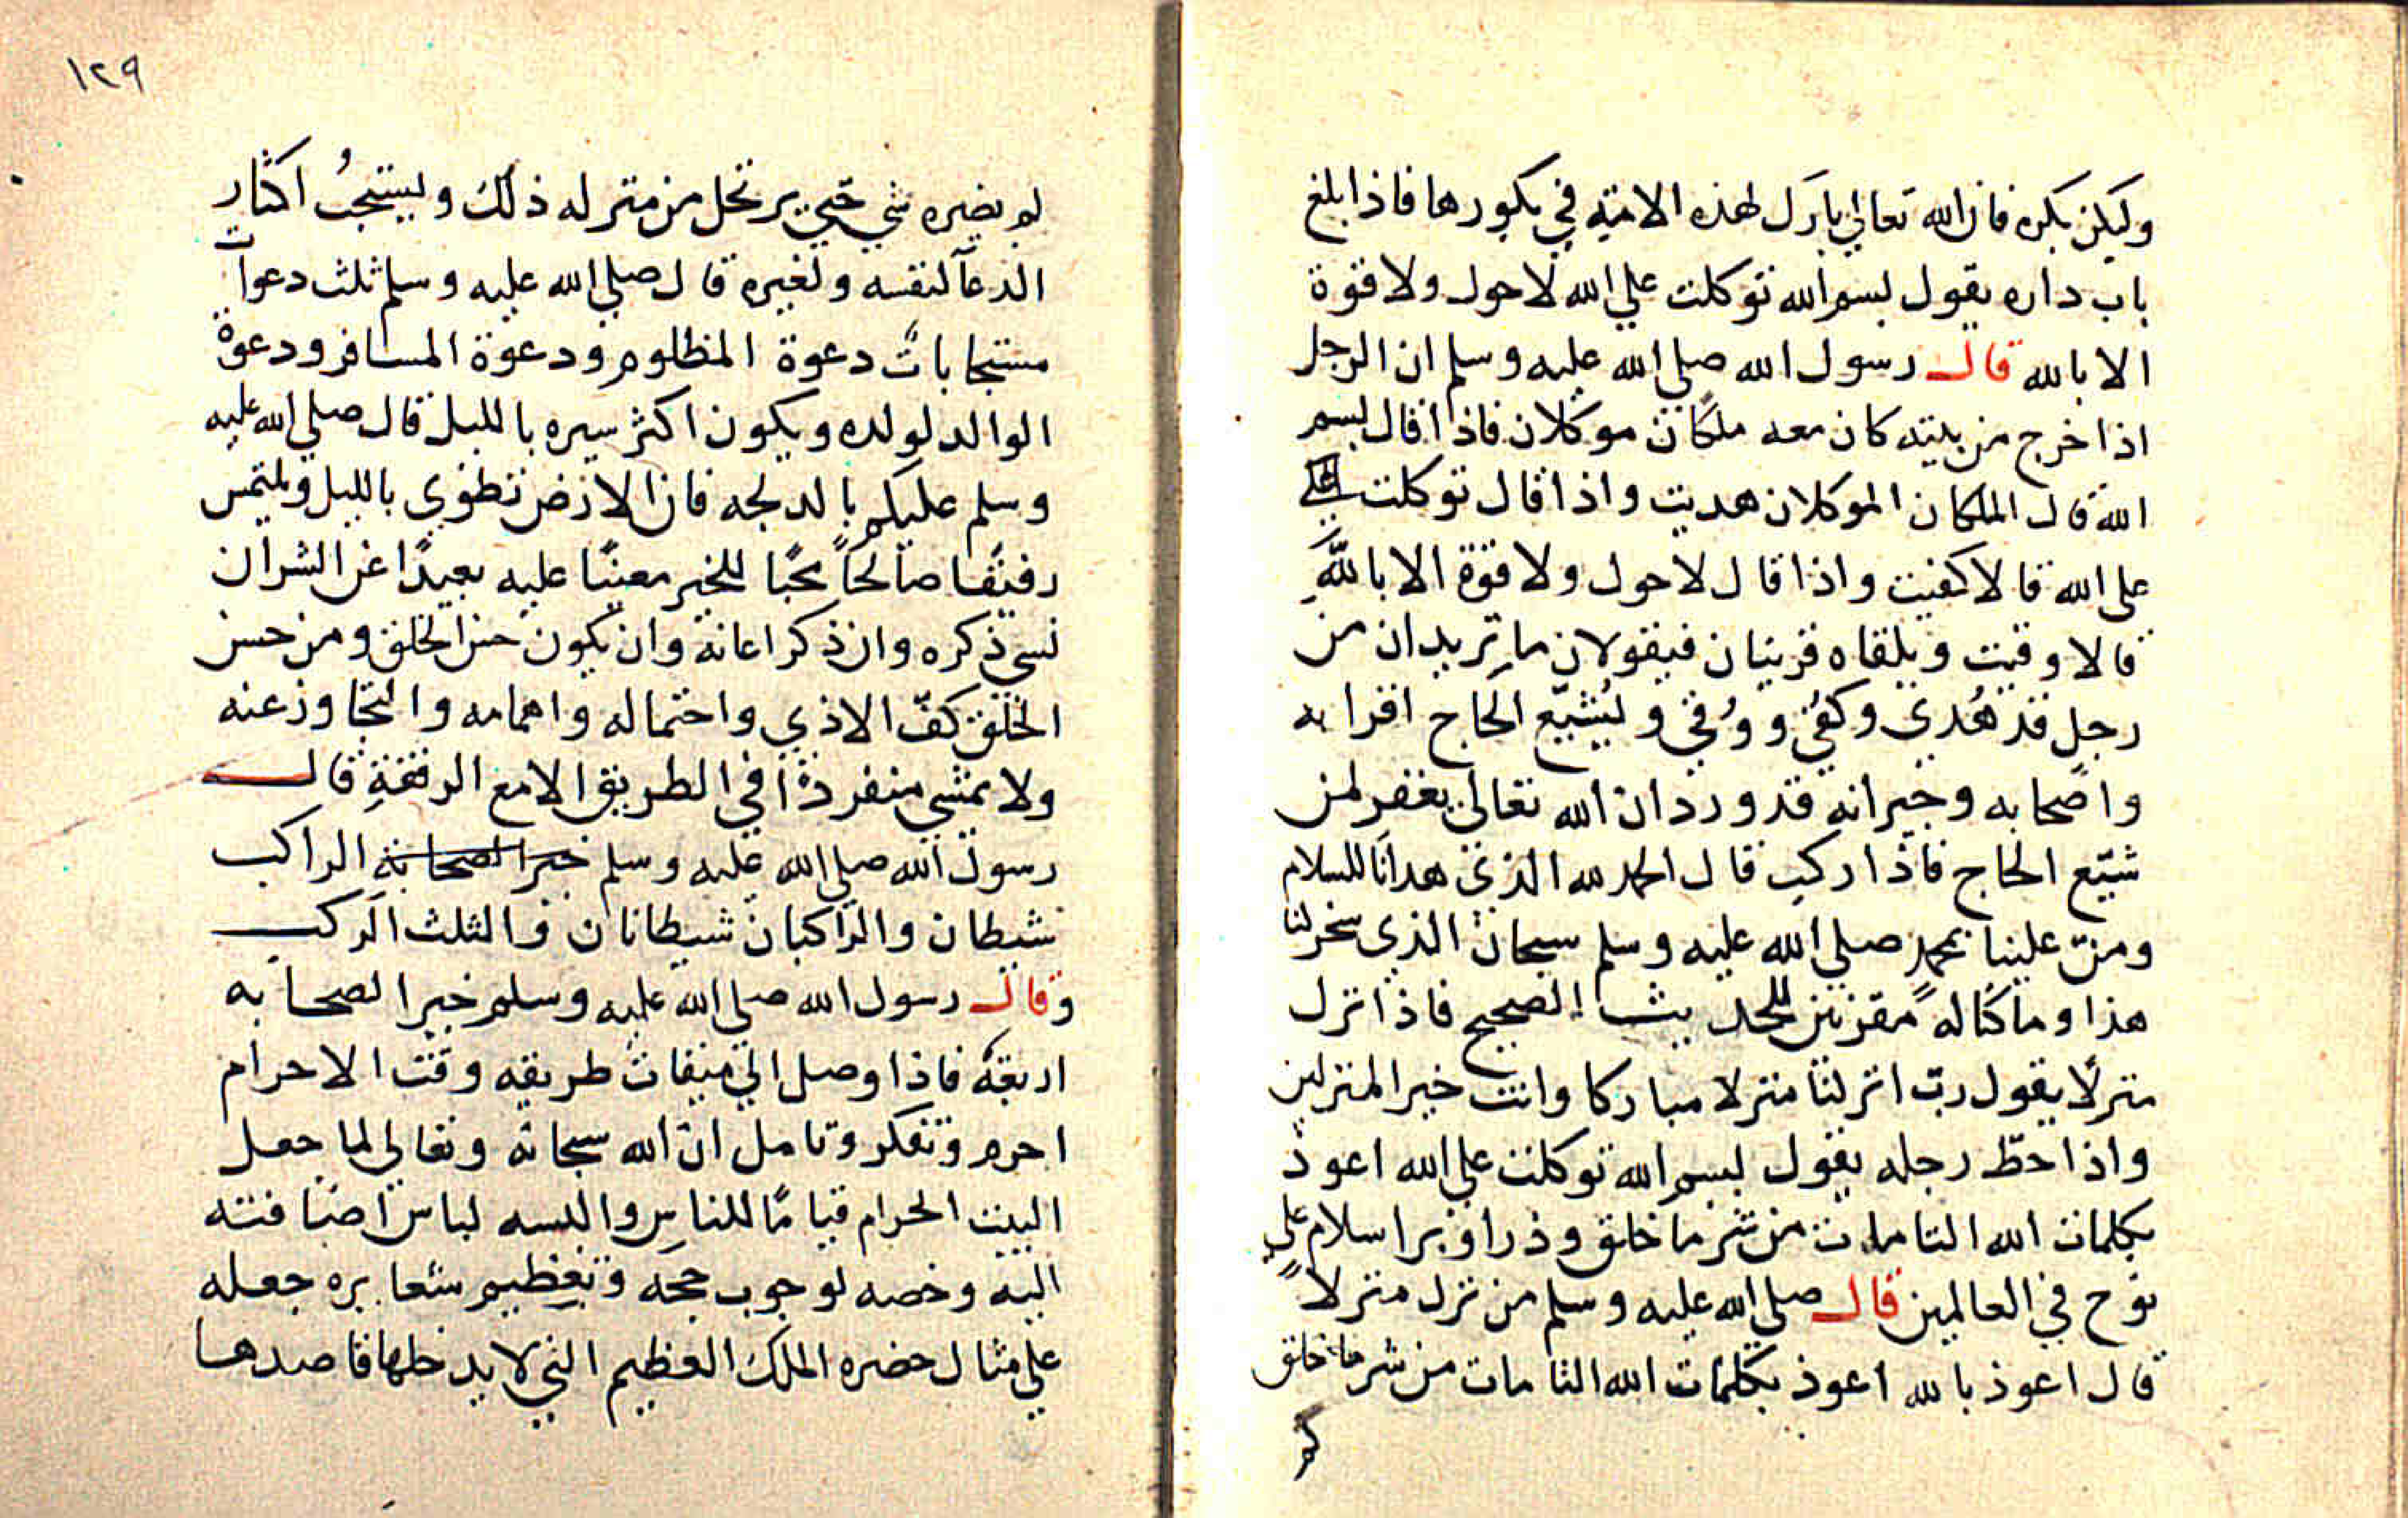 وليكن بكره فان الله تعالي بارك لهذه الامة في بكورها فاذا بلغ
باب داره يقول بسم الله توكلت علي الله لا حول ولا قوة
الا بالله قال رسول الله صلي الله عليه وسلم ان الرجل
اذا خرج من بيته كان معه ملكان موكلان فاذا قال بسم
الله قال الملكان الموكلان هديت واذا قال توكلت
علي الله قالا كفيت واذا قال لا حول ولا قوة الا بالله
قالا وقيت ويلقاه قرينان فيقولان ما تريدان من
رجل قد هُدي وكفي ووُقي وليُشيّع الحاج اقرابه
واصحابه وجيرانه قد ورد ان الله تعالي يغفر لمن
شيّع الحاج فاذا ركب قال الحمد لله الذي هدانا للسلام
ومنّ علينا بمحمدٍ صلي الله عليه وسلم سبحان الذي سخر لنا
هذا وما كنا له مقرنين للحديث الصحيح فاذا نزل
منزلًا يقول ربّ انزلنا منزلا مباركا وانت خير المنزلين
واذا حطّ رحله يقول بسم الله توكلت علي الله اعوذ
بكلمات الله التامات من شر ما خلق وذرا وبرا سلام علي
نوح في العالمين قال صلي الله عليه وسلم من نزل منزلاً
قال اعوذ بالله اعوذ بكلمات الله التامات من شر ما خلق
لم
١٢٩
لم يضره شي حتّي يرتحل من منزله ذلك ويستحبُ اكثار
الدعآ لنفسه ولغيره قال صلي الله عليه وسلم ثلث دعوات
مستجابات دعوة المظلوم ودعوة المسافر ودعوة
الوالد لولده ويكون اكثر سيره بالليل قال صلي الله عليه
وسلم عليكم بالدلجه فان الارض تطوي بالليل ويلتمس
رفيقا صالحاً محبًا للخير معينًا عليه بعيدًا عن الشر ان
نسي ذكره وان ذكر اعانه وان يكون حسن الخلق ومن حسن
الخلق كفّ الاذي واحتماله واهمامه والتجاوز عنه
ولا يمشي منفردًا في الطريق الا مع الرفقةِ قال
رسول الله صلي الله عليه وسلم خير الصحابة الراكب
شيطان والراكبان شيطانان والثلث الركب
وقال رسول الله صلي الله عليه وسلم خير الصحابه
اربعة فاذا وصل الي ميقات طريقه وقت الاحرام
احرم وتفكر وتامل ان الله سبحانه وتعالي لما جعل
البيت الحرام قيامًا للناس والبسه لباس اضافته
اليه وخصه لوجوب حجه وتعظيم شعايره جعله
علي مثال حضره الملك العظيم التي لا يدخلها قاصدها